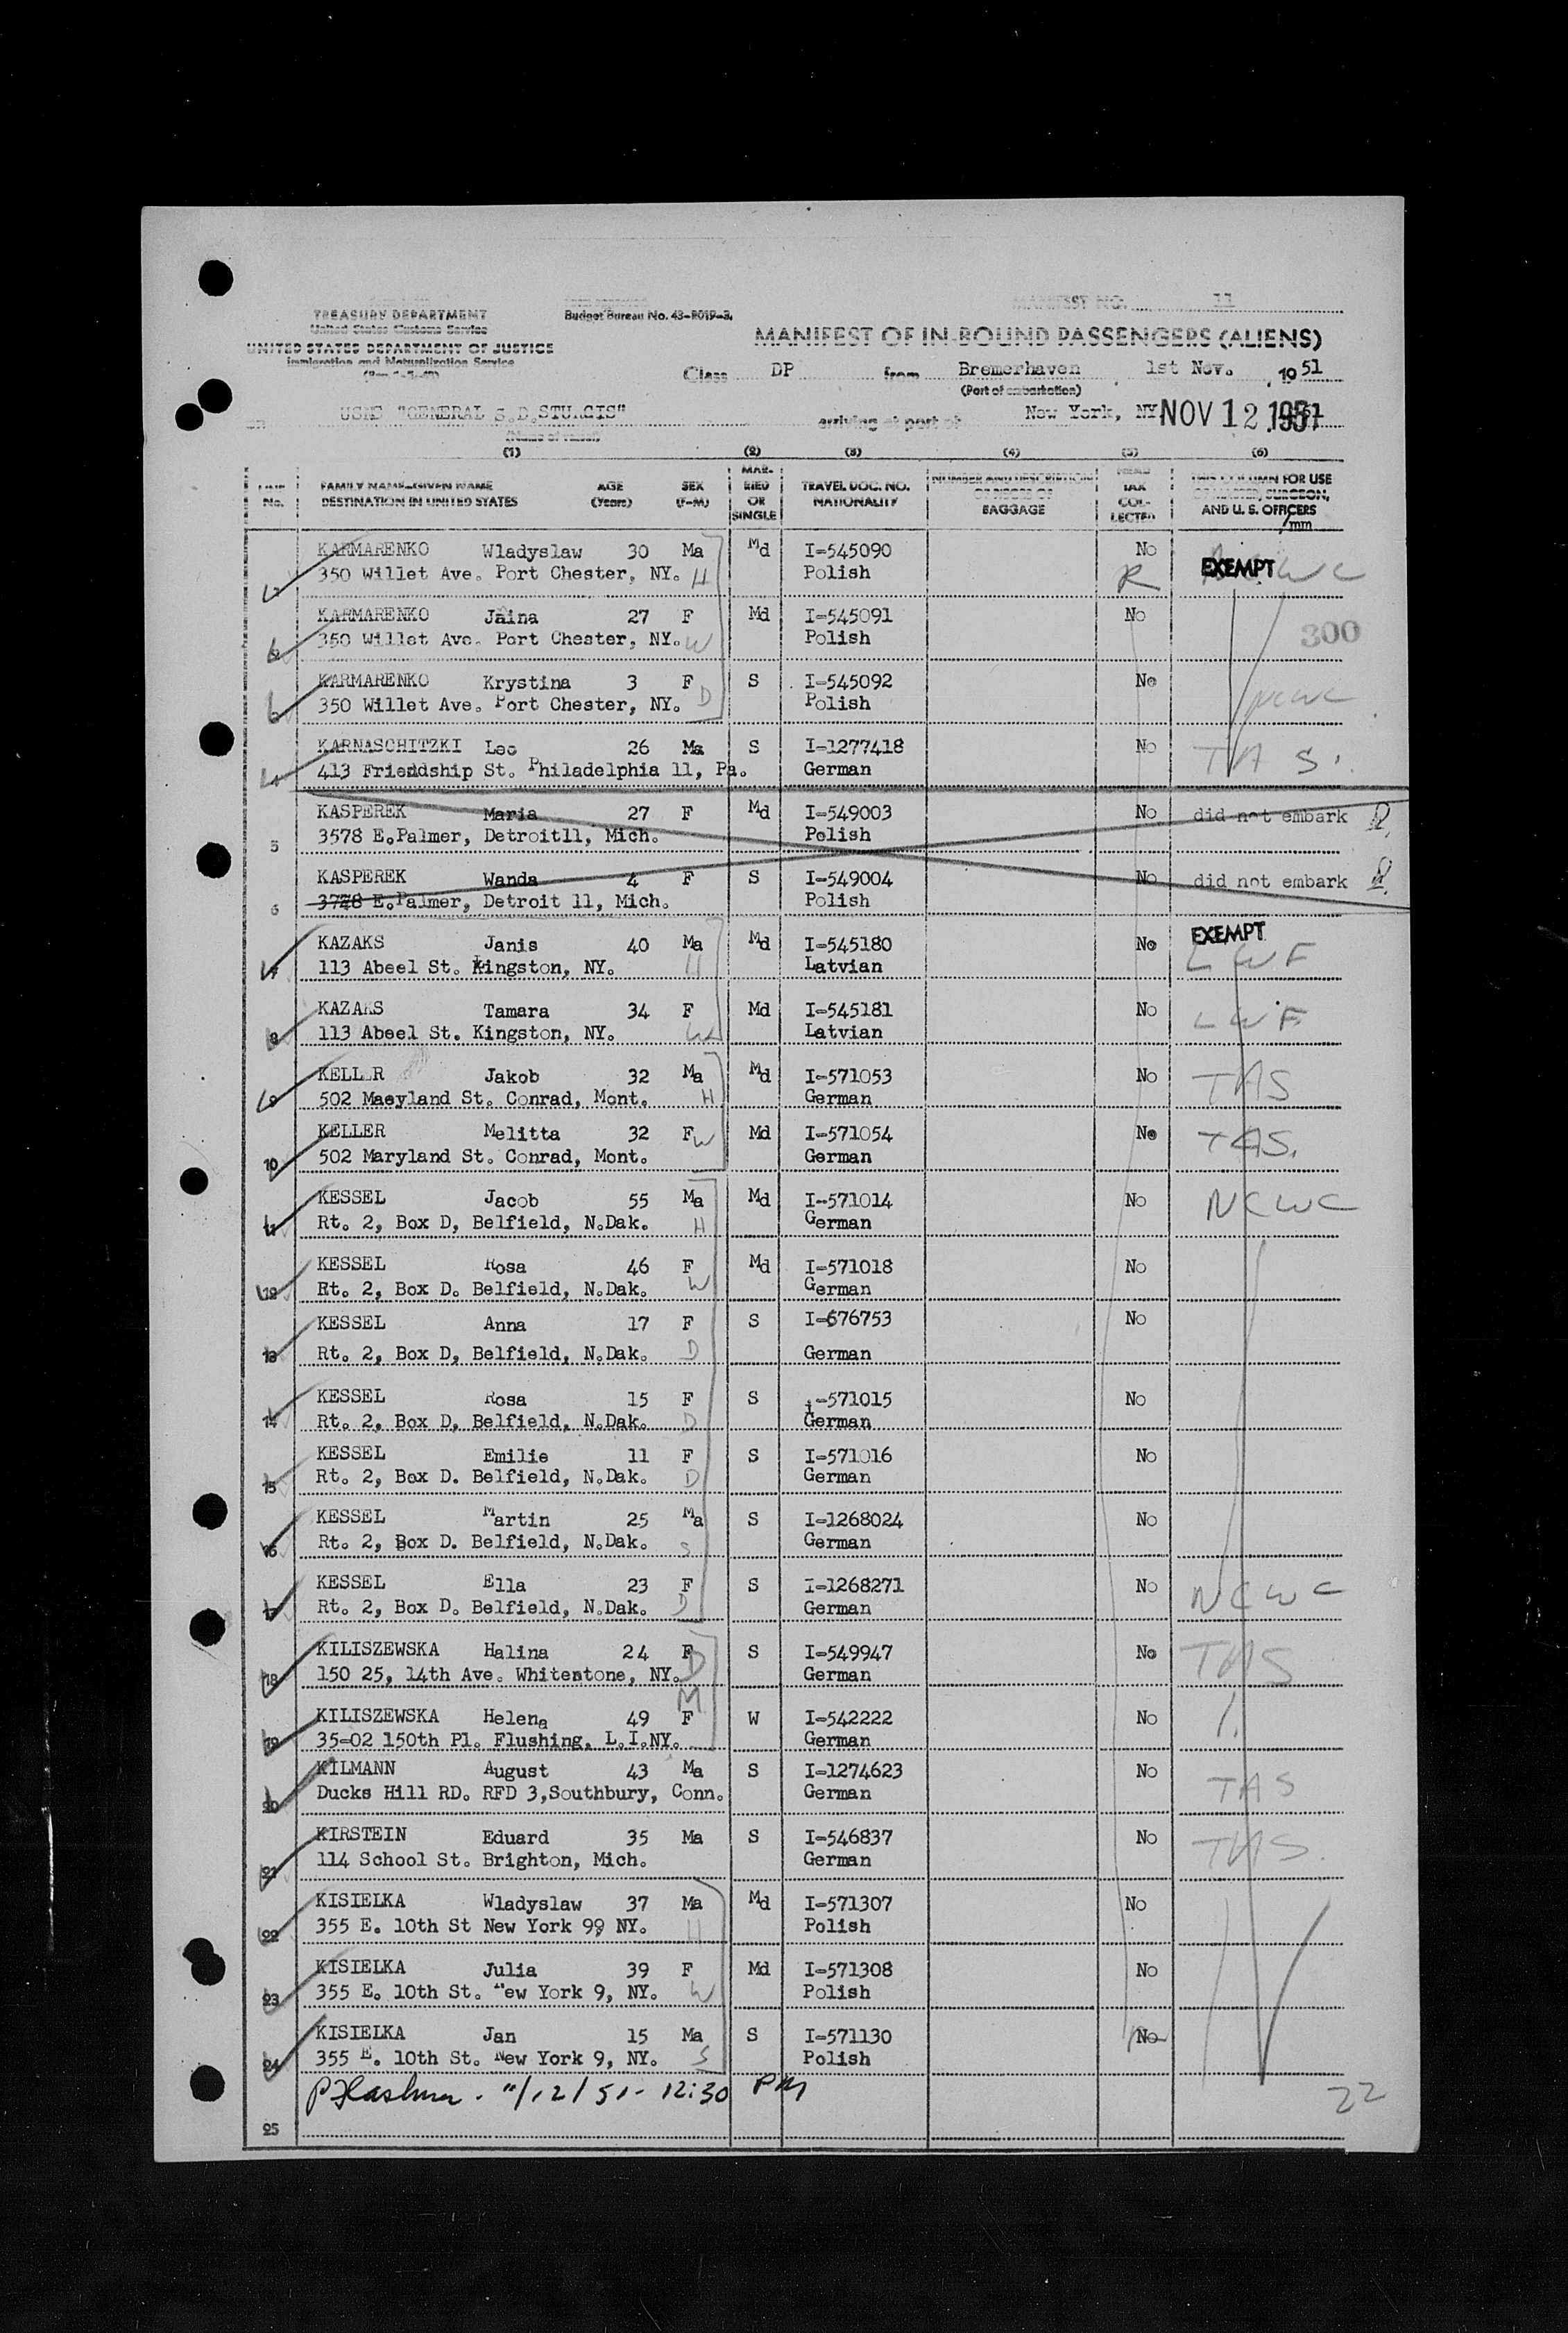 MANIFEST NO. 11
TREASURY DEPARTMENT
United States Customs Service
UNITED STATES DEPARTMENT OF JUSTICE
Immigration and Naturalization Service
Budget Bureau No. 43-R019-3.
MANIFEST OF IN-BOUND PASSENGERS (ALIENS)
Class DP from Bremerhaven 1st Nov. , 19 51
(Port of embarkation)
on USNS "GENERAL S.D.STURGIS" arriving at port of New York, NY NOV 12 1951
(Name of vessel)
(1) (2) (3) (4) (5) (6)
LINE No. FAMILY NAME—GIVEN NAME DESTINATION IN UNITED STATES AGE (Years) SEX (F-M) MARRIED OR SINGLE TRAVEL DOC. NO. NATIONALITY NUMBER AND DESCRIPTION OF PIECES OF BAGGAGE HEAD TAX COLLECTED THIS COLUMN FOR USE OF MASTER, SURGEON, AND U. S. OFFICERS
KARMARENKO Wladyslaw 30 Ma Md I-545090 No
350 Willet Ave. Port Chester, NY. H Polish R EXEMPT
2 KARMARENKO Jaina 27 F Md I-545091 No
350 Willet Ave. Port Chester, NY. W Polish 300
3 KARMARENKO Krystina 3 F S I-545092 No
350 Willet Ave. Port Chester, NY. D Polish NCWC
4 KARNASCHITZKI Leo 26 Ma S I-1277418 No
413 Friendship St. Philadelphia 11, Pa. German TAS.
5 KASPEREK Maria 27 F Md I-549003 No did not embark
3578 E.Palmer, Detroit11, Mich. Polish
6 KASPEREK Wanda 4 F S I-549004 No did not embark
3728 E.Palmer, Detroit 11, Mich. Polish
7 KAZAKS Janis 40 Ma Md I-545180 No EXEMPT
113 Abeel St. Kingston, NY. H Latvian LWF
8 KAZAKS Tamara 34 F Md I-545181 No LWF
113 Abeel St. Kingston, NY. W Latvian
9 KELLER Jakob 32 Ma Md I-571053 No TAS
502 Maeyland St. Conrad, Mont. H German
10 KELLER Melitta 32 F W Md I-571054 No TAS.
502 Maryland St. Conrad, Mont. German
11 KESSEL Jacob 55 Ma Md I-571014 No NCWC
Rt. 2, Box D, Belfield, N.Dak. H German
12 KESSEL Rosa 46 F Md I-571018 No
Rt. 2, Box D. Belfield, N.Dak. W German
13 KESSEL Anna 17 F S I-676753 No
Rt. 2, Box D, Belfield, N.Dak. D German
14 KESSEL Rosa 15 F S i-571015 No
Rt. 2, Box D, Belfield, N.Dak. D German
15 KESSEL Emilie 11 F S I-571016 No
Rt. 2, Box D. Belfield, N.Dak. D German
16 KESSEL Martin 25 Ma S I-1268024 No
Rt. 2, Box D. Belfield, N.Dak. S German
17 KESSEL Ella 23 F S I-1268271 No NCWC
Rt. 2, Box D. Belfield, N.Dak. D German
18 KILISZEWSKA Halina 24 F S I-549947 No TAS
150 25, 14th Ave. Whitestone, NY. D German
19 KILISZEWSKA Helena 49 M F W I-542222 No
35-02 150th Pl. Flushing, L.I.NY. German
20 KILMANN August 43 Ma S I-1274623 No TAS
Ducks Hill RD. RFD 3,Southbury, Conn. German
21 KIRSTEIN Eduard 35 Ma S I-546837 No TAS.
114 School St. Brighton, Mich. German
22 KISIELKA Wladyslaw 37 Ma Md I-571307 No
355 E. 10th St New York 99 NY. H Polish
23 KISIELKA Julia 39 F Md I-571308 No
355 E. 10th St. New York 9, NY. W Polish
24 KISIELKA Jan 15 Ma S I-571130 No
355 E. 10th St. New York 9, NY. S Polish
11/12/51 - 12:30 PM 22
25